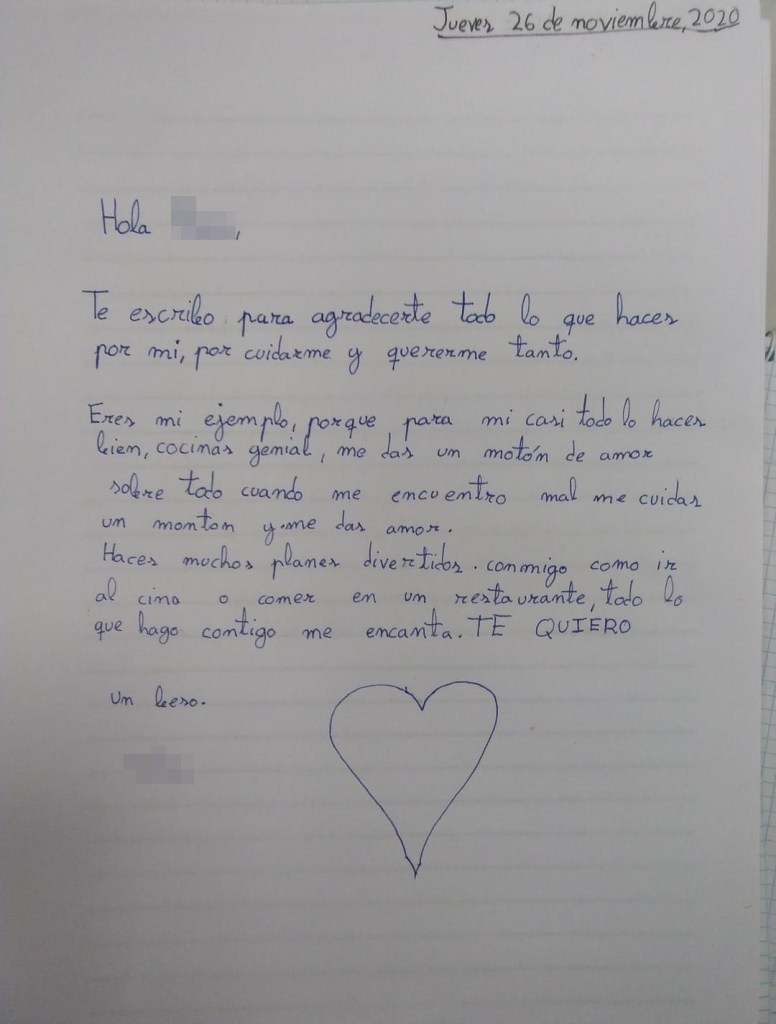 Jueves 26 de noviembre, 2020
Hola ,
Te escribo para agradecerte todo lo que haces
por mi, por cuidarme y quererme tanto.
Eres mi ejemplo, porque para mi casi todo lo haces
bien, cocinas genial, me das un motón de amor
sobre todo cuando me encuentro mal me cuidas
un monton y me das amor.
Haces muchos planes divertidos. conmigo como ir
al cina o comer en un restaurante, todo lo
que hago contigo me encanta. TE QUIERO
Un beso.